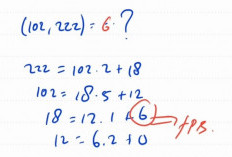 (102, 222) = 6 . ?
222 = 102 . 2 + 18
102 = 18 . 5 + 12
18 = 12 . 1 + 6
FPB.
12 = 6 . 2 + 0